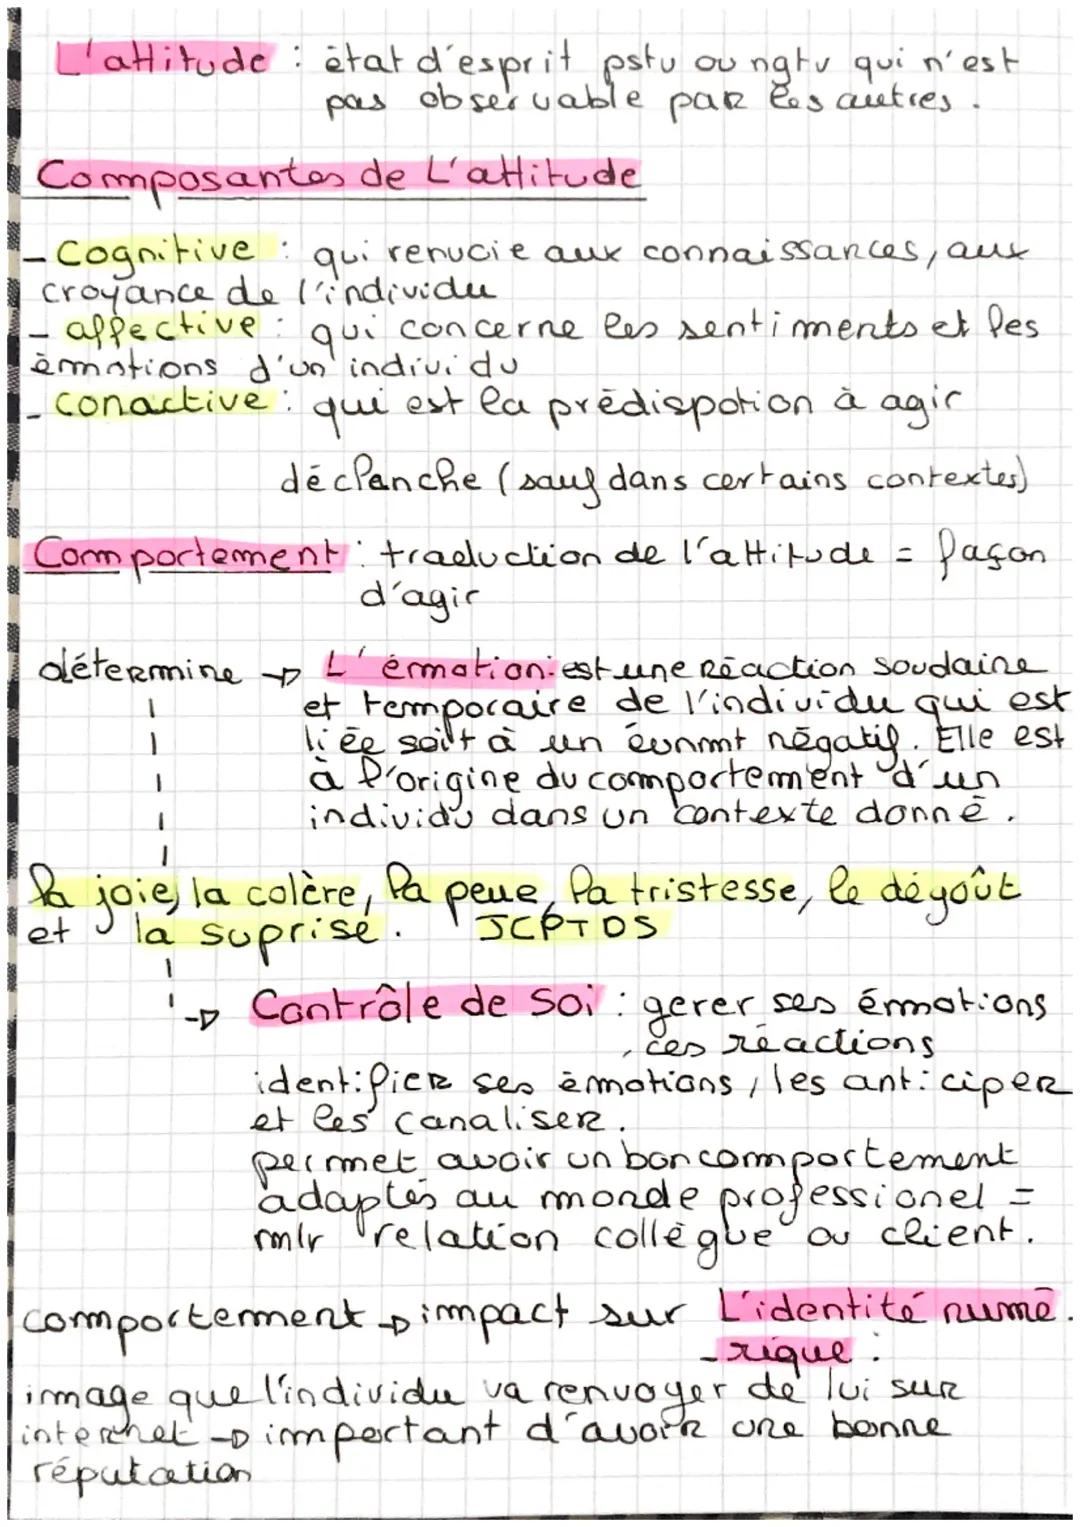 L'attitude : état d'esprit pstv ou ngtv qui n'est
pas observable par les autres.
Composantes de L'attitude
- Cognitive : qui renucie aux connaissances, aux
croyance de l'individu
- affective : qui concerne les sentiments et les
émotions d'un individu
- conactive : qui est la prédispotion à agir
déclanche (sauf dans certains contextes)
Comportement : traduction de l'attitude = façon
d'agir
détermine → L'émotion : est une Réaction soudaine
et temporaire de l'individu qui est
liée soit à un évnmt négatif. Elle est
à l'origine du comportement d'un
individu dans un contexte donné.
la joie, la colère, la peue, la tristesse, le dégoût
et la suprise. JCPTDS
→ Contrôle de Soi : gerer ses émotions
, ces réactions
identifier ses émotions, les anticiper
et les canaliser.
permet avoir un bon comportement
adaptés au monde professionel =
mlr relation collègue ou client.
comportement → impact sur L'identité numé
-rique :
image que l'individu va renvoyer de lui sur
internet → important d'avoir une bonne
réputation